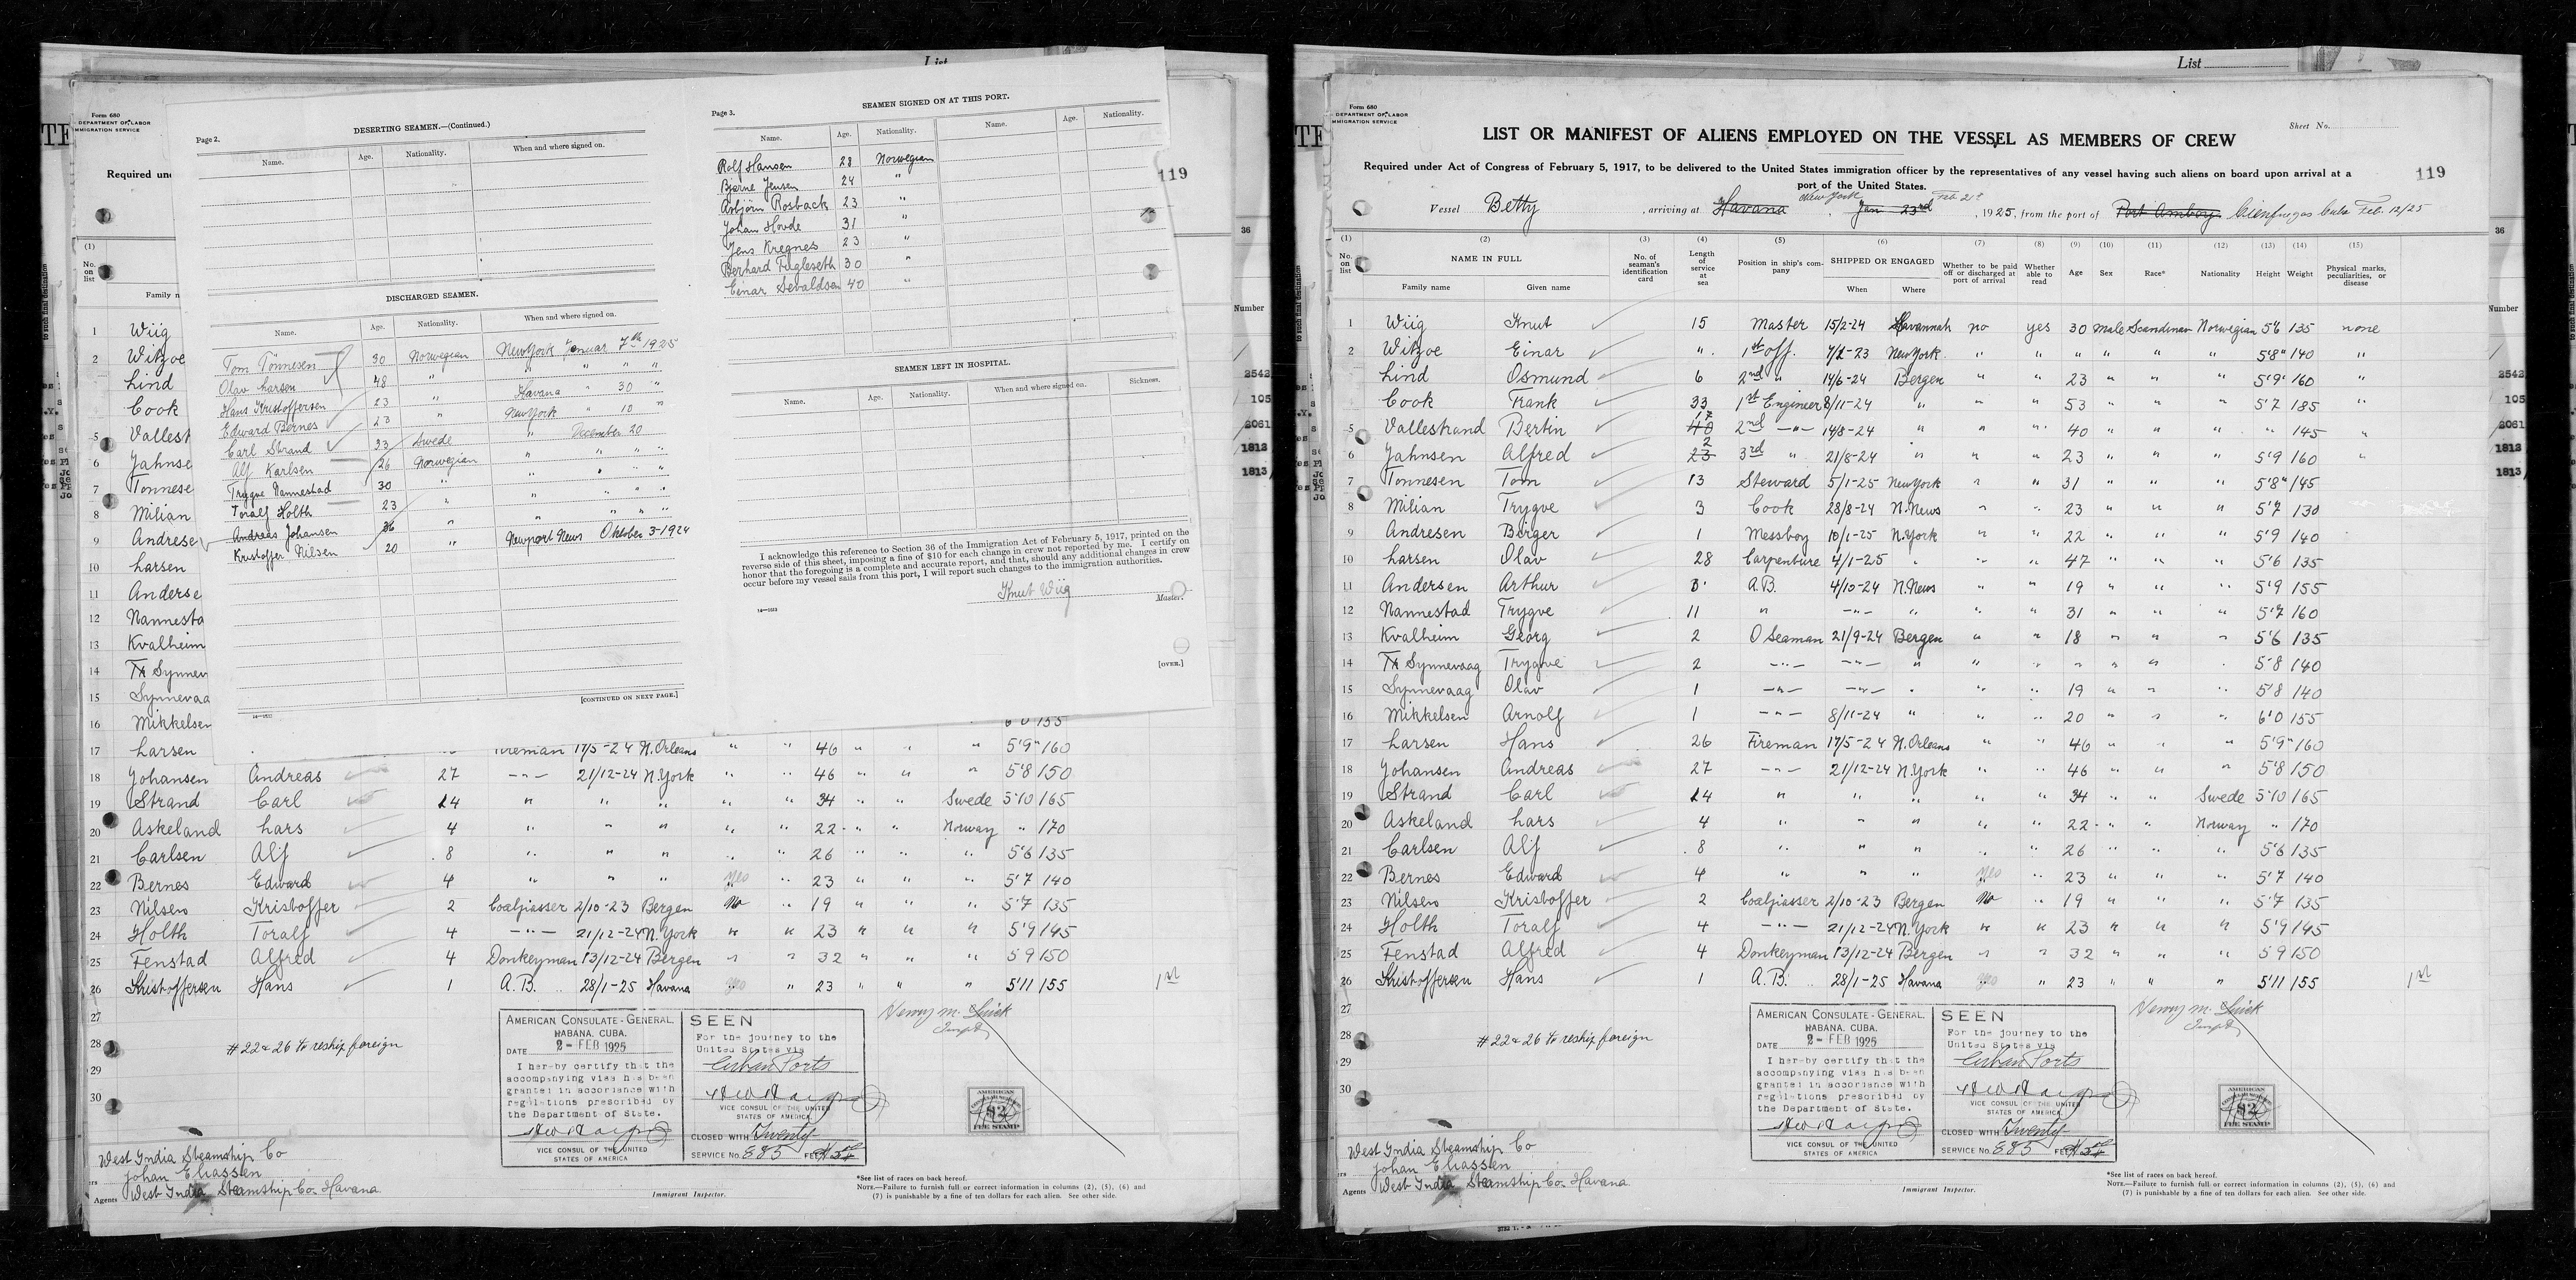 List
Form 680
DEPARTMENT OF LABOR
IMMIGRATION SERVICE
Required un
119
Page 2.
DESERTING SEAMEN.—(Continued.)
Name. Age. Nationality. When and where signed on.
DISCHARGED SEAMEN.
Name. Age. Nationality. When and where signed on.
Tom Tönnesen 30 Norwegian New York Januar 7th 1925
Olav Larsen 48 " " " " "
Hans Kristoffersen 23 " Havana " 30 "
Edward Bernes 23 New York " 10 "
Carl Strand 33 Swede " December 20
Alf Karlsen 26 Norwegian " " " "
Trygve Nannestad 30 " " " " "
Toralf Holth 23 " " " " "
Andreas Johansen 36 " " " " "
Kristoffer Nilsen 20 " Newport News Oktober 3-1924
[CONTINUED ON NEXT PAGE.]
Page 3.
SEAMEN SIGNED ON AT THIS PORT.
Name. Age. Nationality. Name. Age. Nationality.
Rolf Hansen 28 Norwegian
Bjarne Jensen 24 "
Asbjörn Rosback 23 "
Johan Hovde 31 "
Jens Kregnes 23 "
Berhard Fugleseth 30 "
Einar Sevaldsen 40 "
SEAMEN LEFT IN HOSPITAL.
Name. Age. Nationality. When and where signed on. Sickness.
I acknowledge this reference to Section 36 of the Immigration Act of February 5, 1917, printed on the
reverse side of this sheet, imposing a fine of $10 for each change in crew not reported by me. I certify on
honor that the foregoing is a complete and accurate report, and that, should any additional changes in crew
occur before my vessel sails from this port, I will report such changes to the immigration authorities.
Knut Wiig
Master.
[OVER.]
(1)
No. on list
Family n
1 Wiig
2 Witzoe
Lind
Cook
5 Vallest
6 Jahnse
7 Tonnese
8 Milian
9 Andrese
10 Larsen
11 Anderse
12 Nannesta
13 Kvalheim
14 Tr Synnev
15 Synnevaa
16 Mikkelsen 6'0 155
17 Larsen Fireman 17/5-24 N. Orleans " " 46 " " " 5'9" 160
18 Johansen Andreas 27 -"- 21/12-24 N. York " " 46 " " " 5'8 150
19 Strand Carl 14 " " " " " 34 " " Swede 5'10 165
20 Askeland Lars 4 " " " " " 22 " " Norway " 170
21 Carlsen Alf 8 " " " " " 26 " " " 5'6 135
22 Bernes Edward 4 " " " Yes " 23 " " " 5'7 140
23 Nilsen Kristoffer 2 Coalpasser 2/10-23 Bergen No " 19 " " " 5'7 135
24 Holth Toralf 4 -"- 21/12-24 N. York " " 23 " " " 5'9 145
25 Fenstad Alfred 4 Donkeyman 13/12-24 Bergen " " 32 " " " 5 9 150
26 Kristoffersen Hans 1 A.B. 28/1-25 Havana yes " 23 " " " 5'11 155 1st
27
28 # 22 & 26 to reship foreign
29
30
AMERICAN CONSULATE-GENERAL,
HABANA, CUBA.
DATE 2 - FEB 1925
I hereby certify that the
accompanying visa has been
granted in accordance with
regulations prescribed by
the Department of State.
VICE CONSUL OF THE UNITED
STATES OF AMERICA
SEEN
For the journey to the
United States via
Cuban Ports
VICE CONSUL OF THE UNITED
STATES OF AMERICA.
CLOSED WITH Twenty
SERVICE No. 885 FEE
Henry M.
Inspt
AMERICAN
$2
FEE STAMP
West India Steamship Co
Johan Eliassen
Agents West India Steamship Co. Havana
Immigrant Inspector.
*See list of races on back hereof.
NOTE.—Failure to furnish full or correct information in columns (2), (5), (6) and
(7) is punishable by a fine of ten dollars for each alien. See other side.
36
Number
2542
105
2061
1812
1813
List
Form 680
DEPARTMENT OF LABOR
IMMIGRATION SERVICE
Sheet No.
LIST OR MANIFEST OF ALIENS EMPLOYED ON THE VESSEL AS MEMBERS OF CREW
Required under Act of Congress of February 5, 1917, to be delivered to the United States immigration officer by the representatives of any vessel having such aliens on board upon arrival at a
port of the United States.
119
Vessel Betty, arriving at Havana New York, Jan 23rd Feb 21st, 1925, from the port of Port Amboy Cienfuegos Cuba Feb. 12/25
(1) (2) (3) (4) (5) (6) (7) (8) (9) (10) (11) (12) (13) (14) (15)
No. on list NAME IN FULL No. of seaman's identification card Length of service at sea Position in ship's company SHIPPED OR ENGAGED Whether to be paid off or discharged at port of arrival Whether able to read Age Sex Race* Nationality Height Weight Physical marks, peculiarities, or disease
Family name Given name When Where
1 Wiig Knut 15 Master 15/2-24 Savannah no yes 30 male Scandinav Norwegian 5'6 135 none
2 Witzoe Einar " 1st off. 7/2-23 New York " " " " " " 5'8" 140 "
Lind Osmund 6 2nd " 14/6-24 Bergen " " 23 " " " 5'9" 160 "
Cook Frank 33 1st Engineer 8/11-24 " " " 53 " " " 5'7 185 "
5 Vallestrand Bertin 17 40 2nd -"- 14/8-24 " " " 40 " " " " 145 "
6 Jahnsen Alfred 2 23 3rd " 21/8-24 " " " 23 " " " 5'9 160 "
7 Tonnesen Tom 13 Steward 5/1-25 New York " " 31 " " " 5'8" 145
8 Milian Trygve 3 Cook 28/8-24 N. News " " 23 " " " 5'7 130
9 Andresen Berger 1 Messboy 10/1-25 N. York " " 22 " " " 5'9 140
10 Larsen Olav 28 Carpenture 4/1-25 " " " 47 " " " 5'6 135
11 Andersen Arthur A.B. 4/10-24 N. News " " 19 " " " 5'9 155
12 Nannestad Trygve 11 " -"- " " " 31 " " " 5'7 160
13 Kvalheim Georg 2 O Seaman 21/9-24 Bergen " " 18 " " " 5'6 135
14 Tr Synnevaag Trygve 2 -"- -"- " " " " " " " 5'8 140
15 Synnevaag Olav 1 -"- -"- " " " 19 " " " 5'8 140
16 Mikkelsen Arnolf 1 -"- 8/11-24 " " " 20 " " " 6'0 155
17 Larsen Hans 26 Fireman 17/5-24 N. Orleans " " 46 " " " 5'9" 160
18 Johansen Andreas 27 -"- 21/12-24 N. York " " 46 " " " 5'8 150
19 Strand Carl 14 " " " " " 34 " " Swede 5'10 165
20 Askeland Lars 4 " " " " " 22 " " Norway " 170
21 Carlsen Alf 8 " " " " " 26 " " " 5'6 135
22 Bernes Edward 4 " " " Yes " 23 " " " 5'7 140
23 Nilsen Kristoffer 2 Coalpasser 2/10-23 Bergen No " 19 " " " 5'7 135
24 Holth Toralf 4 -"- 21/12-24 N. York " " 23 " " " 5'9 145
25 Fenstad Alfred 4 Donkeyman 13/12-24 Bergen " " 32 " " " 5 9 150
26 Kristoffersen Hans 1 A.B. 28/1-25 Havana yes " 23 " " " 5'11 155 1st
27
28 # 22 & 26 to reship foreign
29
30
AMERICAN CONSULATE-GENERAL,
HABANA, CUBA.
DATE 2 - FEB 1925
I hereby certify that the
accompanying visa has been
granted in accordance with
regulations prescribed by
the Department of State.
VICE CONSUL OF THE UNITED
STATES OF AMERICA
SEEN
For the journey to the
United States via
Cuban Ports
VICE CONSUL OF THE UNITED
STATES OF AMERICA.
CLOSED WITH Twenty
SERVICE No. 885 FEE
Henry M.
Inspt
AMERICAN
$2
FEE STAMP
West India Steamship Co
Johan Eliassen
Agents West India Steamship Co. Havana
Immigrant Inspector.
*See list of races on back hereof.
NOTE.—Failure to furnish full or correct information in columns (2), (5), (6) and
(7) is punishable by a fine of ten dollars for each alien. See other side.
36
Number
2542
105
2061
1812
1813